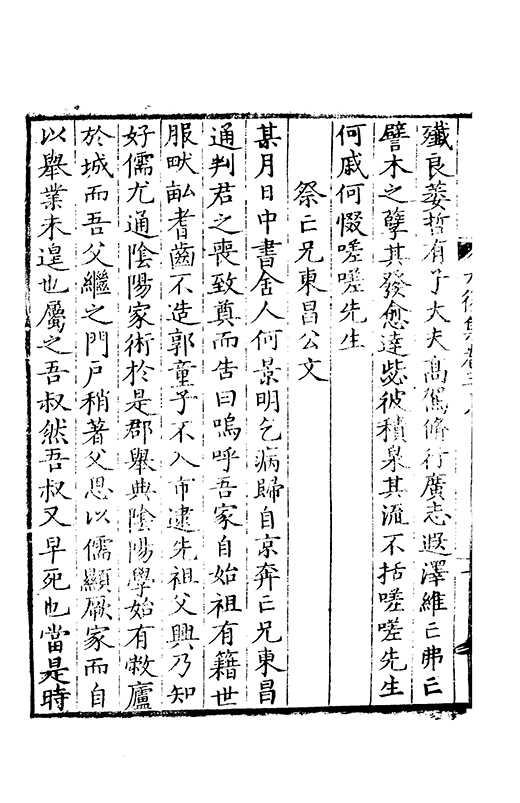 殲良萎哲有子大夫高駕脩行廣志遐澤維亡弗亡
譬木之孽其發愈達毖彼積泉其流不括嗟嗟先生
何戚何惙嗟嗟先生
祭亡兄東昌公文
某月日中書舍人何景明乞病歸自京奔亡兄東昌
通判君之喪致奠而告曰嗚呼吾家自始祖有籍世
服畎畝耆齒不造郭童子不入市逮先祖父興乃知
好儒尤通陰陽家術於是郡舉典陰陽學始有敝廬
於城而吾父繼之門戶稍著父思以儒顯厥家而自
以舉業未遑也屬之吾叔然吾叔又早死也當是時